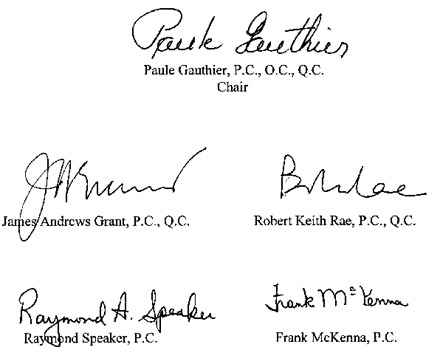 Paule Gauthier
Paule Gauthier, P.C., O.C., Q.C.
Chair
James Andrews Grant, P.C., Q.C.
Robert Keith Rae, P.C., Q.C.
Raymond A. Speaker
Frank McKenna
Raymond Speaker, P.C.
Frank McKenna, P.C.